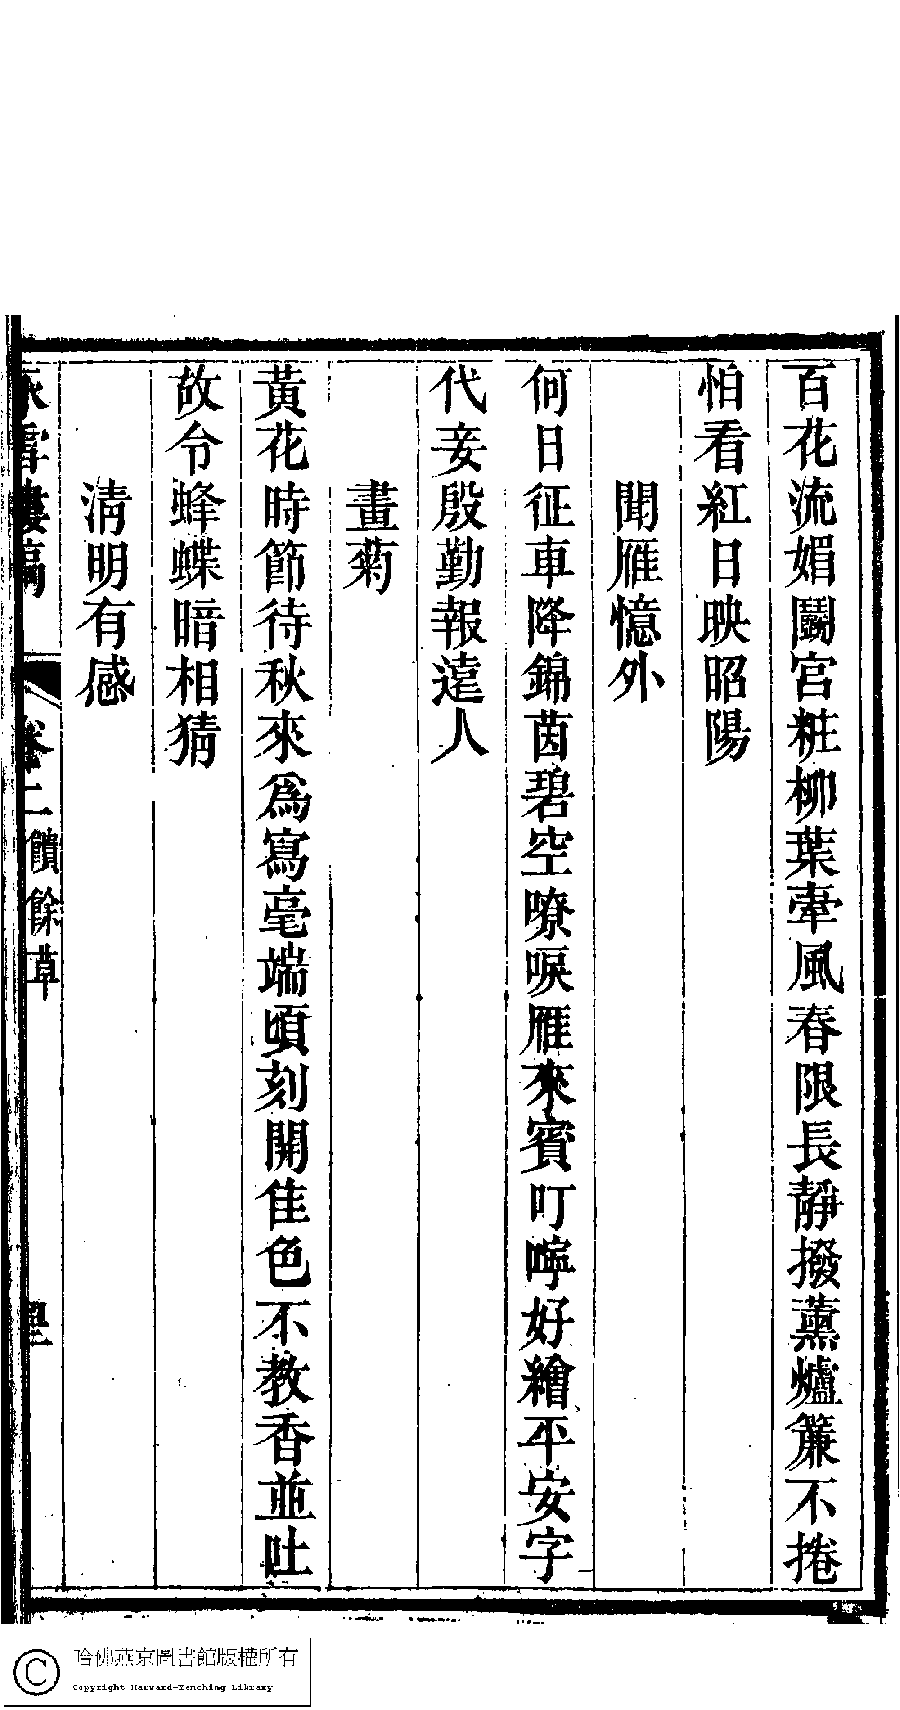 百花流媚鬬宮粧柳葉牽風春限長靜撥薰爐簾不捲
怕看紅日映昭陽
聞雁憶外
何日征車降錦茵碧空嘹唳雁來賓叮嚀好繪平安字
代妾殷勤報遠人
畫菊
黃花時節待秋來爲寫毫端頃刻開佳色不教香並吐
故令蜂蝶暗相猜
淸明有感
雪樓稿 卷二饋餘草
哈佛燕京圖書館版權所有
Copyright Harvard-Yenching Library